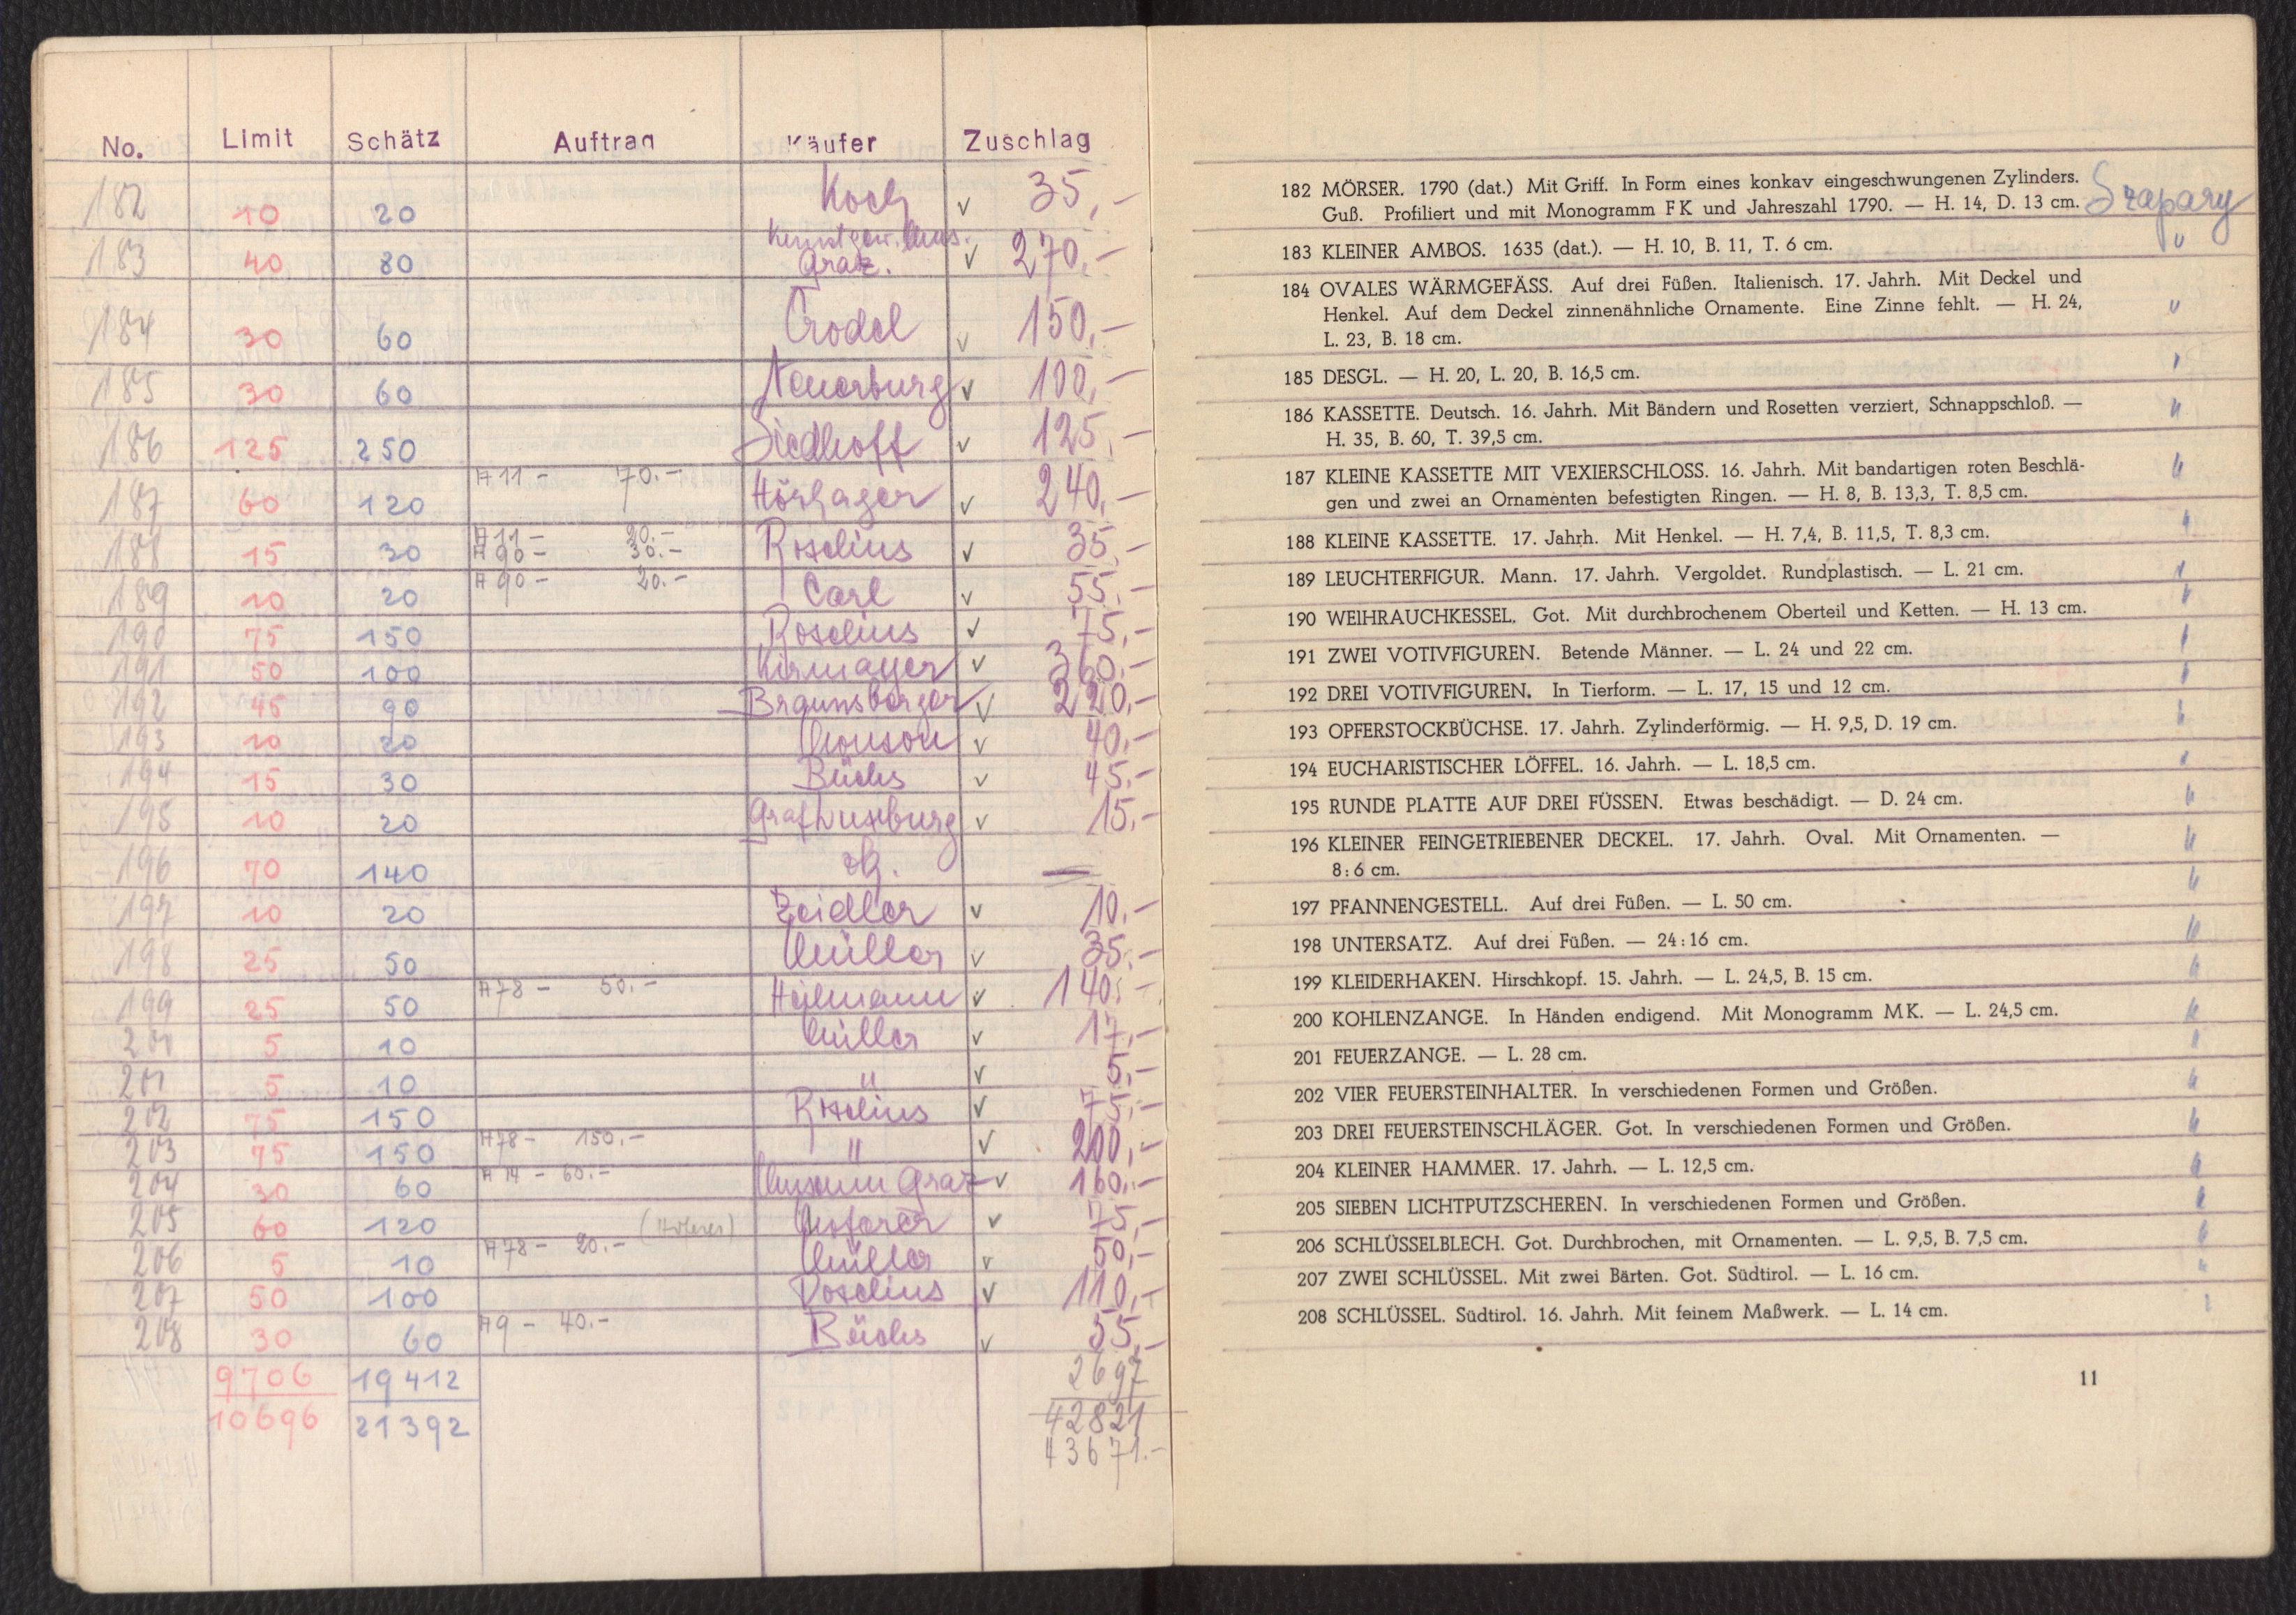 No. Limit Schätz Auftrag Käufer Zuschlag
182 10 20 Koch v 35,-
Kunstgew. Mus.
183 40 80 Graz. v 270,-
184 30 60 Crodel v 150,-
185 30 60 Neuerburg v 100,-
186 125 250 Siedhoff v 125,-
187 60 120 A 11 - 70.- v 240,-
A 11 - 20.-
188 15 30 A 90 - 30.- Roselius v 35,-
189 10 20 A 90 - 20.- Carl v 55,-
190 75 150 Roselius v 75,-
191 50 100 Kirmayer v 360,-
192 45 90 Braunsberger v 220,-
193 10 20 v 40,-
194 15 30 Büchs v 45,-
195 10 20 Graf v 15,-
196 70 140 —
197 10 20 Zeidler v 10,-
198 25 50 Müller v 35,-
199 25 50 A 78 - 50.- Heilmann v 140,-
200 5 10 Müller v 17,-
201 5 10 " v 5,-
202 75 150 Roselius v 75,-
203 75 150 A 78 - 150.- " v 200,-
204 30 60 A 14 - 60.- Museum Graz v 160,-
205 60 120 v 75,-
206 5 10 A 78 - 20.- Müller v 50,-
207 50 100 Roselius v 110,-
208 30 60 A 9 - 40.- Büchs v 55,-
9706 19412 2697
10696 21392 42821
43671.-
182 MÖRSER. 1790 (dat.) Mit Griff. In Form eines konkav eingeschwungenen Zylinders. Szapary
Guß. Profiliert und mit Monogramm F K und Jahreszahl 1790. — H. 14, D. 13 cm.
183 KLEINER AMBOS. 1635 (dat.). — H. 10, B. 11, T. 6 cm. "
184 OVALES WÄRMGEFÄSS. Auf drei Füßen. Italienisch. 17. Jahrh. Mit Deckel und
Henkel. Auf dem Deckel zinnenähnliche Ornamente. Eine Zinne fehlt. — H. 24, "
L. 23, B. 18 cm.
185 DESGL. — H. 20, L. 20, B. 16,5 cm. "
186 KASSETTE. Deutsch. 16. Jahrh. Mit Bändern und Rosetten verziert, Schnappschloß. — "
H. 35, B. 60, T. 39,5 cm.
187 KLEINE KASSETTE MIT VEXIERSCHLOSS. 16. Jahrh. Mit bandartigen roten Beschlä- "
gen und zwei an Ornamenten befestigten Ringen. — H. 8, B. 13,3, T. 8,5 cm.
188 KLEINE KASSETTE. 17. Jahrh. Mit Henkel. — H. 7,4, B. 11,5, T. 8,3 cm. "
189 LEUCHTERFIGUR. Mann. 17. Jahrh. Vergoldet. Rundplastisch. — L. 21 cm. "
190 WEIHRAUCHKESSEL. Got. Mit durchbrochenem Oberteil und Ketten. — H. 13 cm. "
191 ZWEI VOTIVFIGUREN. Betende Männer. — L. 24 und 22 cm. "
192 DREI VOTIVFIGUREN. In Tierform. — L. 17, 15 und 12 cm. "
193 OPFERSTOCKBÜCHSE. 17. Jahrh. Zylinderförmig. — H. 9,5, D. 19 cm. "
194 EUCHARISTISCHER LÖFFEL. 16. Jahrh. — L. 18,5 cm. "
195 RUNDE PLATTE AUF DREI FÜSSEN. Etwas beschädigt. — D. 24 cm. "
196 KLEINER FEINGETRIEBENER DECKEL. 17. Jahrh. Oval. Mit Ornamenten. — "
8:6 cm.
197 PFANNENGESTELL. Auf drei Füßen. — L. 50 cm. "
198 UNTERSATZ. Auf drei Füßen. — 24:16 cm. "
199 KLEIDERHAKEN. Hirschkopf. 15. Jahrh. — L. 24,5, B. 15 cm. "
200 KOHLENZANGE. In Händen endigend. Mit Monogramm M K. — L. 24,5 cm. "
201 FEUERZANGE. — L. 28 cm. "
202 VIER FEUERSTEINHALTER. In verschiedenen Formen und Größen. "
203 DREI FEUERSTEINSCHLÄGER. Got. In verschiedenen Formen und Größen. "
204 KLEINER HAMMER. 17. Jahrh. — L. 12,5 cm. "
205 SIEBEN LICHTPUTZSCHEREN. In verschiedenen Formen und Größen. "
206 SCHLÜSSELBLECH. Got. Durchbrochen, mit Ornamenten. — L. 9,5, B. 7,5 cm. "
207 ZWEI SCHLÜSSEL. Mit zwei Bärten. Got. Südtirol. — L. 16 cm. "
208 SCHLÜSSEL. Südtirol. 16. Jahrh. Mit feinem Maßwerk. — L. 14 cm. "
11